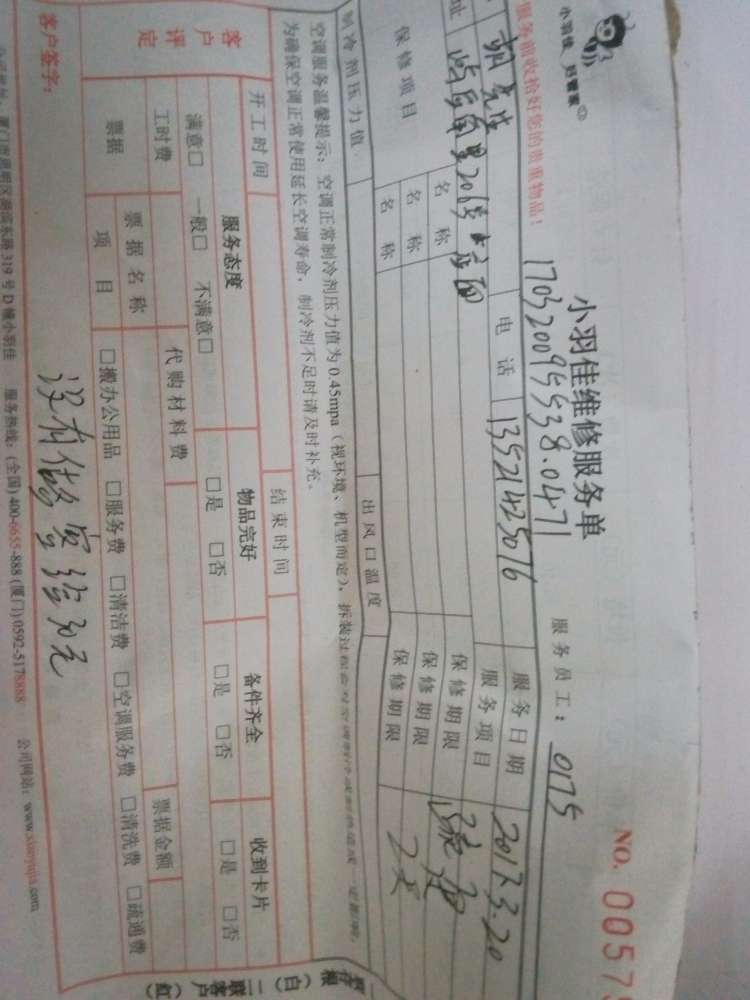 小羽佳 好管家
小羽佳维修服务单
NO. 0057
服务前收拾好您的贵重物品！
170320095538.0471
服务员工： 0175
胡先生
电话 13521425016
服务日期 2017.3.20
址
服务项目
保修项目
名称
保修期限
名称
保修期限
2天
名称
保修期限
制冷剂压力值
出风口温度
空调服务温馨提示：空调正常制冷剂压力值为0.45mpa（视环境、机型而定），拆装过程
为确保空调正常使用延长空调寿命，制冷剂不足时请及时补充。
开工时间
结束时间
客户评定
服务态度
物品完好
备件齐全
收到卡片
满意□ 一般□ 不满意□
□是 □否
□是 □否
□是 □否
工时费
代购材料费
票据金额
票据
票据名称
项目
□搬办公用品 □服务费 □清洁费 □空调服务费 □清洗费 □疏通费
客户签字：
没有修 实给30元
319号D幢小羽佳 服务热线：(全国)400-6655-888 (厦门)0592-5178888 公司网站：www.xiaoyujia.com
存根（白） 二联客户（红）